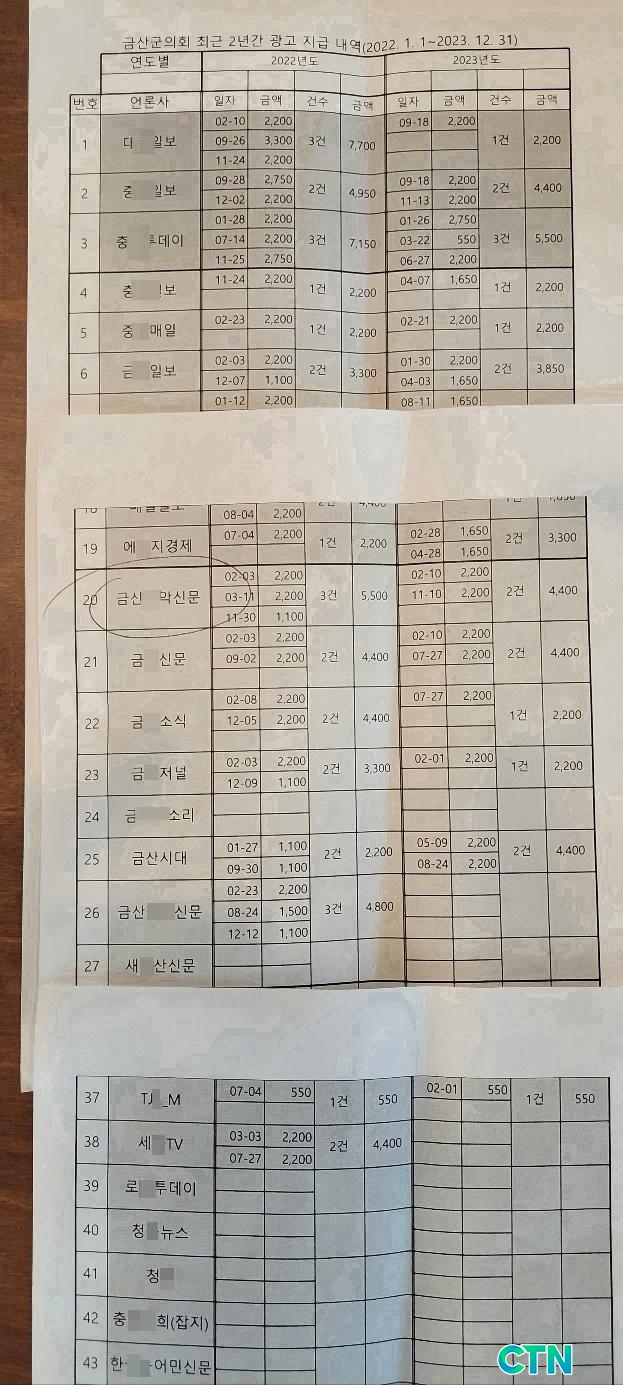 금산군의회 최근 2년간 광고 지급 내역(2022. 1. 1~2023. 12. 31)
연도별 2022년도 2023년도
번호 언론사 일자 금액 건수 금액 일자 금액 건수 금액
02-10 2,200 09-18 2,200
1 일보 09-26 3,300 3건 7,700 1건 2,200
11-24 2,200
2 일보 09-28 2,750 2건 4,950 09-18 2,200 2건 4,400
12-02 2,200 11-13 2,200
01-28 2,200 01-26 2,750
3 충 투데이 07-14 2,200 3건 7,150 03-22 550 3건 5,500
11-25 2,750 06-27 2,200
4 충 보 11-24 2,200 1건 2,200 04-07 1,650 1건 2,200
5 매일 02-23 2,200 1건 2,200 02-21 2,200 1건 2,200
6 일보 02-03 2,200 2건 3,300 01-30 2,200 2건 3,850
12-07 1,100 04-03 1,650
01-12 2,200 08-11 1,650
08-04 2,200
19 지경제 07-04 2,200 1건 2,200 02-28 1,650 2건 3,300
04-28 1,650
02-03 2,200 02-10 2,200
20 금산 악신문 03-11 2,200 3건 5,500 11-10 2,200 2건 4,400
11-30 1,100
02-03 2,200 02-10 2,200
21 금 신문 09-02 2,200 2건 4,400 07-27 2,200 2건 4,400
02-08 2,200 07-27 2,200
22 금 소식 12-05 2,200 2건 4,400 1건 2,200
23 금 저널 02-03 2,200 2건 3,300 02-01 2,200 1건 2,200
12-09 1,100
24 금 소리
25 금산시대 01-27 1,100 2건 2,200 05-09 2,200 2건 4,400
09-30 1,100 08-24 2,200
02-23 2,200
26 금산 신문 08-24 1,500 3건 4,800
12-12 1,100
27 새 산신문
37 TJ _M 07-04 550 1건 550 02-01 550 1건 550
38 세 TV 03-03 2,200 2건 4,400
07-27 2,200
39 로 투데이
40 청 뉴스
41 청
42 충 희(잡지)
43 한 어민신문
CTN